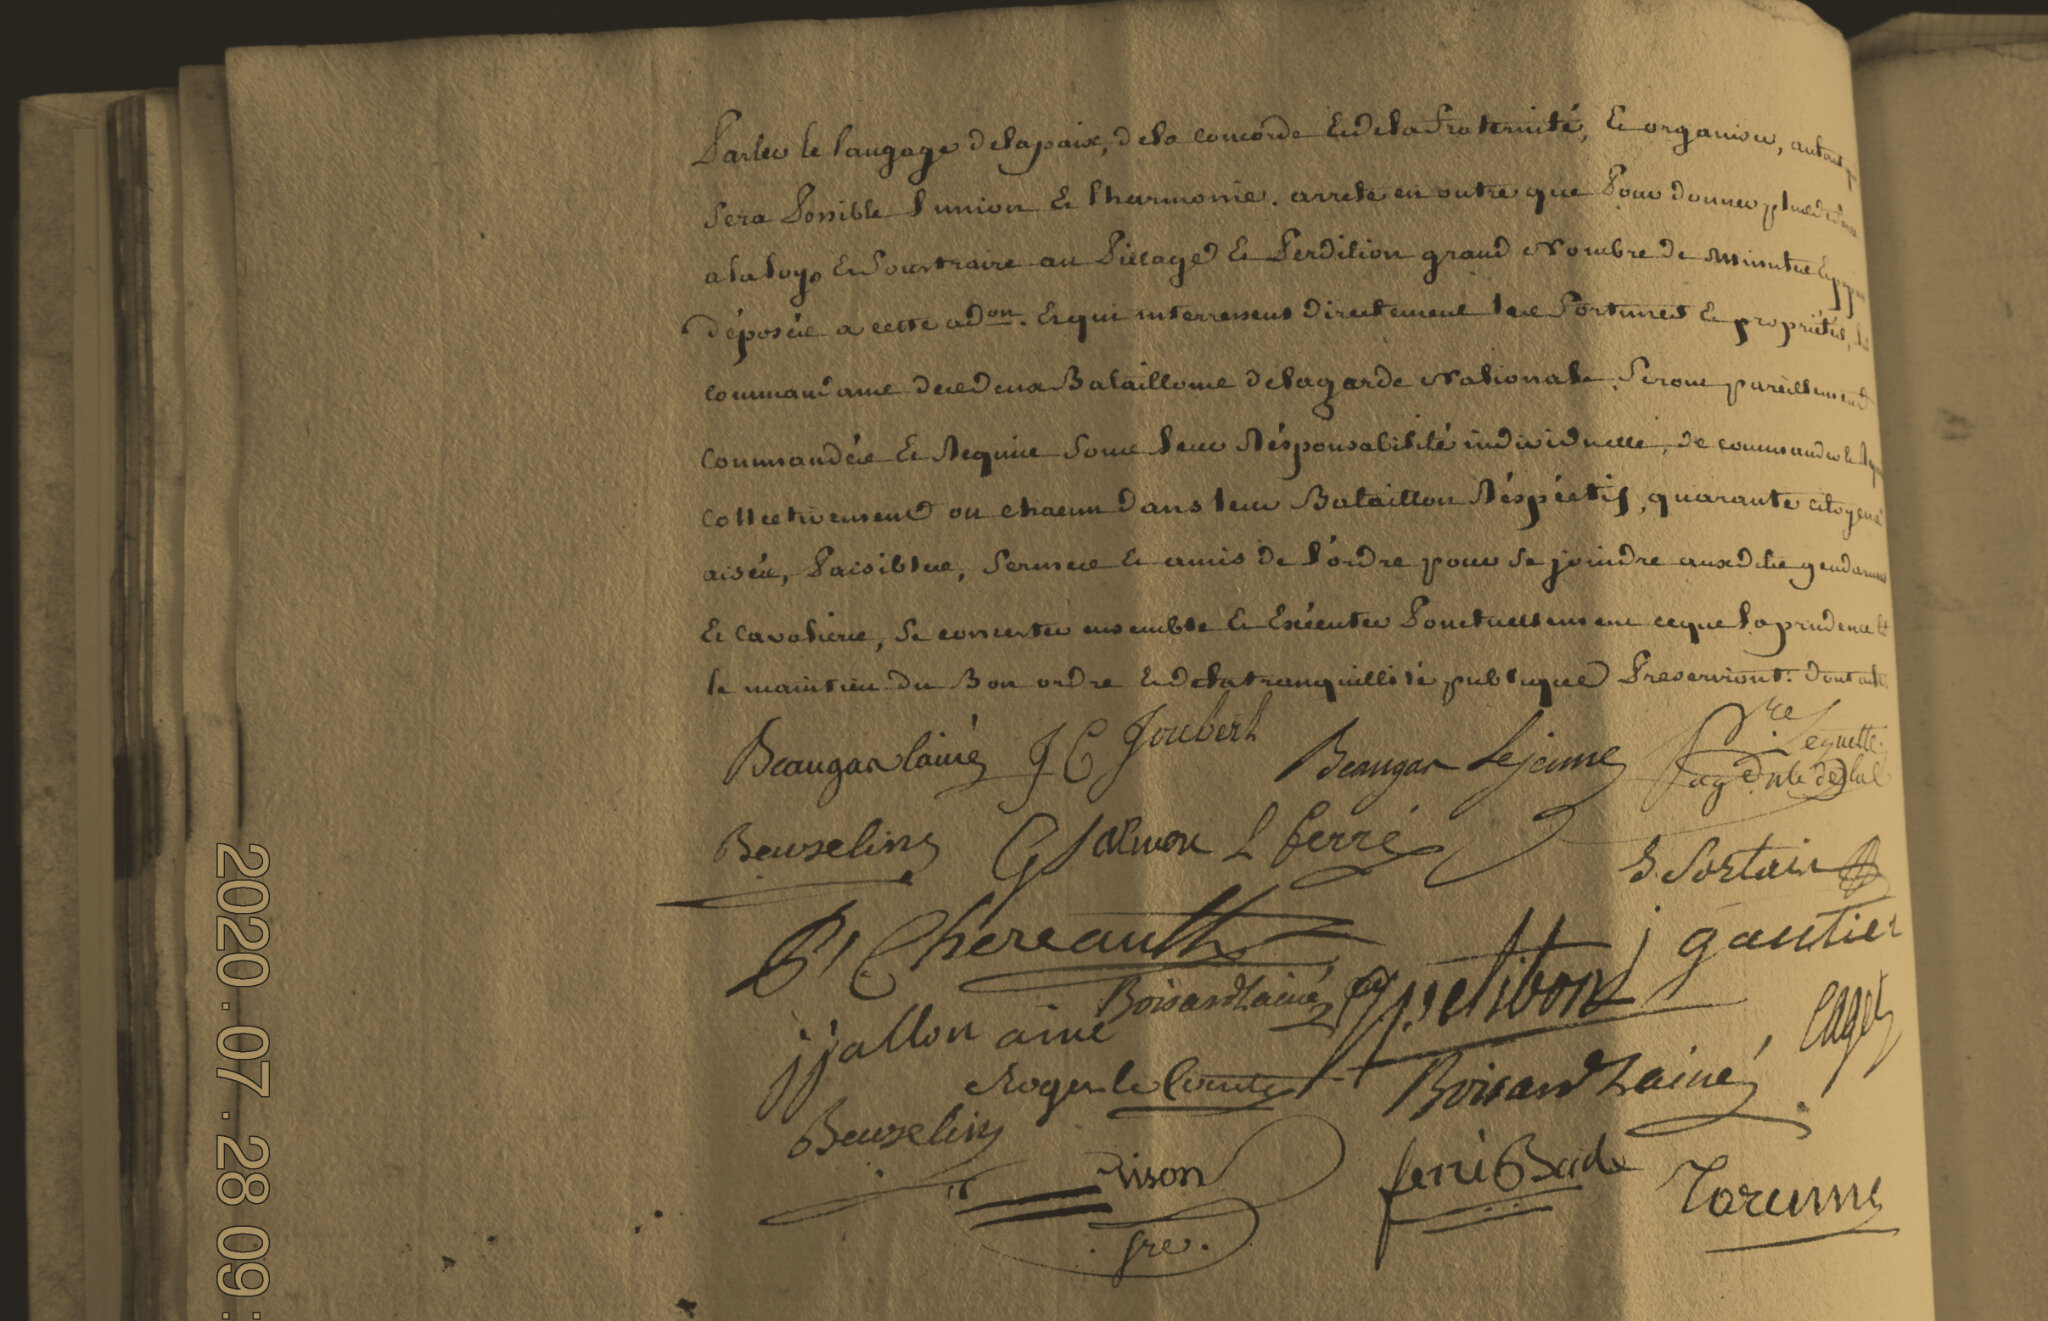 Parler le langage de la paix, de la concorde et de la fraternité, et organiser, autant
sera possible l'union et l'harmonie. arrete en outre que pour donner plus de
a la loy, et soustraire au Pillage et Perdition grand Nombre de minutes et papiers
déposés a cette adon. et qui interressent directement les fortunes et propriétés, les
commandans des deux Bataillons de la garde Nationale, seront pareillement
commandés et Requis sous leur Résponsabilité individuelle, de commander et
collectivement ou chacun dans leur Bataillon Réspéctif, quarante citoyens
aisés, Paisibles, fermes et amis de l'ordre pour se joindre auxdits gendarmes
et cavaliers, se concerter ensemble et Exécuter Ponctuellement ce que la prudence et
le maintien du Bon ordre et de la tranquillité publique Prescriront. dont acte
Beaugar lainé J C Joubert Beaugar Lejeune
Beuzelin G Salmon L ferré S. Sortain
Chereault petibon j gautier
jjallon ainé Boisard Lainé
Roger le Comte Boisard Lainé
Beuzelin
Pison
2020.07.28 09: